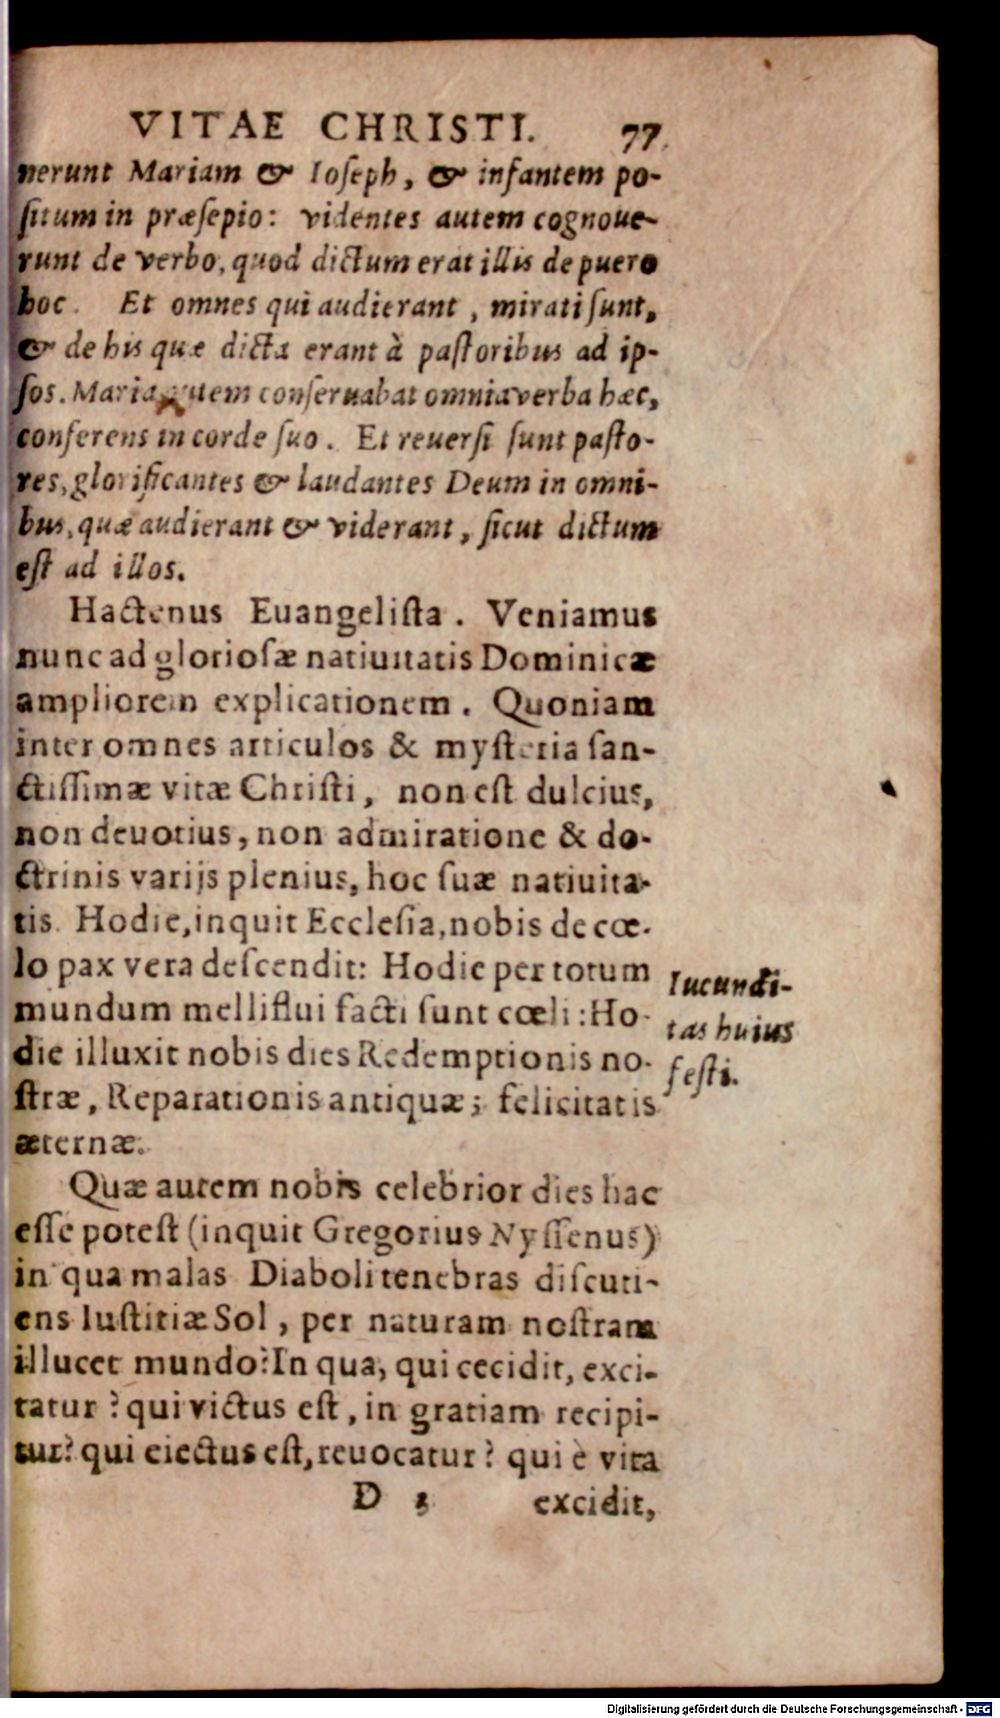 VITAE CHRISTI. 77
nerunt Mariam & Ioſeph, & infantem po-
ſitum in præſepio: videntes autem cognoue-
runt de verbo, quod dictum erat illis de puero
hoc. Et omnes qui audierant, mirati ſunt,
& de his quæ dicta erant à paſtoribus ad ip-
ſos. Maria autem conſeruabat omnia verba hæc,
conferens in corde ſuo. Et reuerſi ſunt paſto-
res, glorificantes & laudantes Deum in omni-
bus, quæ audierant & viderant, ſicut dictum
eſt ad illos.
Hactenus Euangeliſta. Veniamus
nunc ad glorioſæ natiuitatis Dominicæ
ampliorem explicationem. Quoniam
inter omnes articulos & myſteria ſan-
ctiſſimæ vitæ Chriſti, non eſt dulcius,
non deuotius, non admiratione & do-
ctrinis varijs plenius, hoc ſuæ natiuita-
tis. Hodie, inquit Eccleſia, nobis de cœ-
lo pax vera deſcendit: Hodie per totum
mundum melliflui facti ſunt cœli: Ho-
die illuxit nobis dies Redemptionis no-
ſtræ, Reparationis antiquæ; felicitatis
æternæ.
Iucundi-
tas huius
feſti.
Quæ autem nobis celebrior dies hac
eſſe poteſt (inquit Gregorius Nyſſenus)
in qua malas Diaboli tenebras diſcuti-
ens Iuſtitiæ Sol, per naturam noſtram
illucet mundo? In qua, qui cecidit, exci-
tatur? qui victus eſt, in gratiam recipi-
tur? qui eiectus eſt, reuocatur? qui è vita
D 3 excidit,
Digitalisierung gefördert durch die Deutsche Forschungsgemeinschaft - DFG